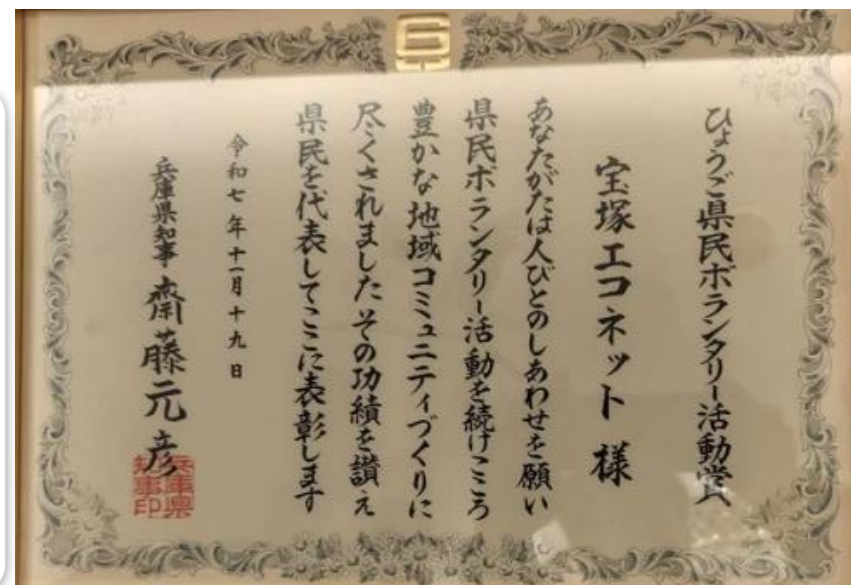 ひょうご県民ボランタリー活動賞
宝塚エコネット 様
あなたがたは人びとのしあわせを願い
県民ボランタリー活動を続けこころ
豊かな地域コミュニティづくりに
尽くされましたその功績を讃え
県民を代表してここに表彰します
令和七年十一月十九日
兵庫県知事 齋藤元彦
兵庫県
知事印